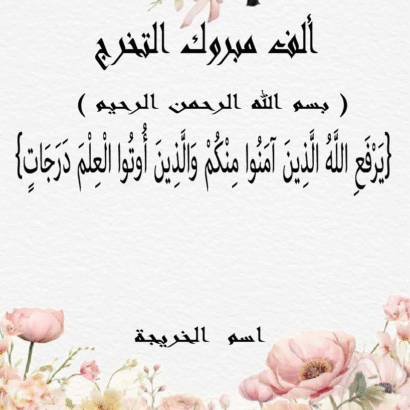 ألف مبروك التخرج
( بسم الله الرحمن الرحيم )
{يَرْفَعِ اللَّهُ الَّذِينَ آمَنُوا مِنْكُمْ وَالَّذِينَ أُوتُوا الْعِلْمَ دَرَجَاتٍ}
اسم الخريجة